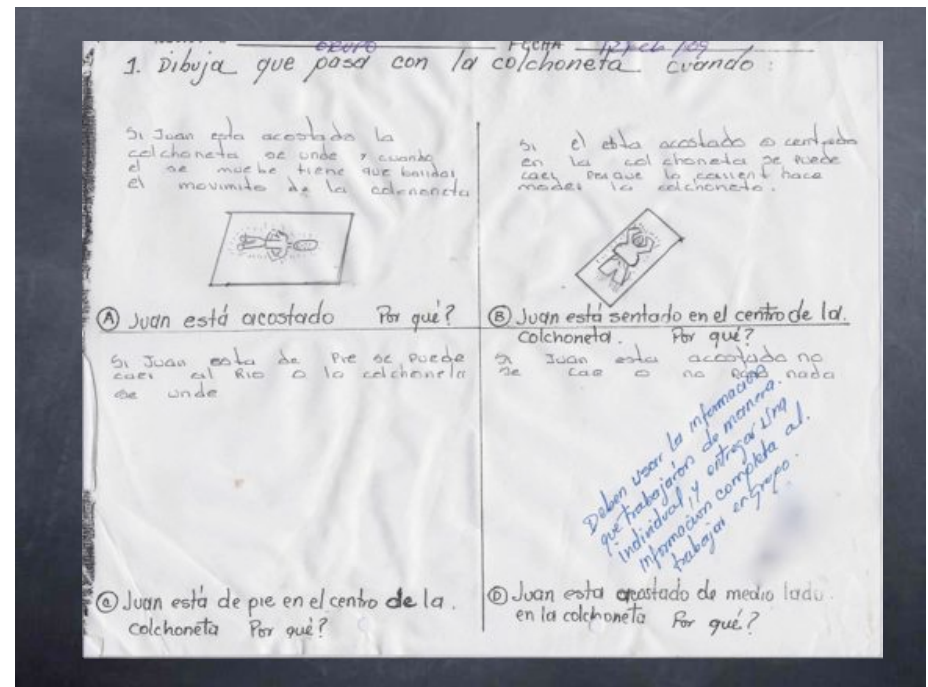 GRUPO FECHA
1. Dibuja que pasa con la colchoneta cuando :
Si Juan esta acostado la
colchoneta se unde y cuando
el se muebe tiene que
el movimito de la colchoneta
Ⓐ Juan está acostado Por qué?
si el esta acostado o centado
en la colchoneta se puede
caer porque la hace
la colchoneta.
Ⓑ Juan está sentado en el centro de la.
colchoneta. Por qué?
Si Juan esta de Pie se puede
caer al Rio o la colchoneta
se unde
Ⓒ Juan está de pie en el centro de la.
colchoneta Por qué?
Si Juan esta accostado no
se cae o no pasa nada
Deben usar la informacion
que trabajaron de manera.
individual, y entregar una
informacion completa al.
trabajar en Grupo.
Ⓓ Juan esta acostado de medio lado.
en la colchoneta Por qué?